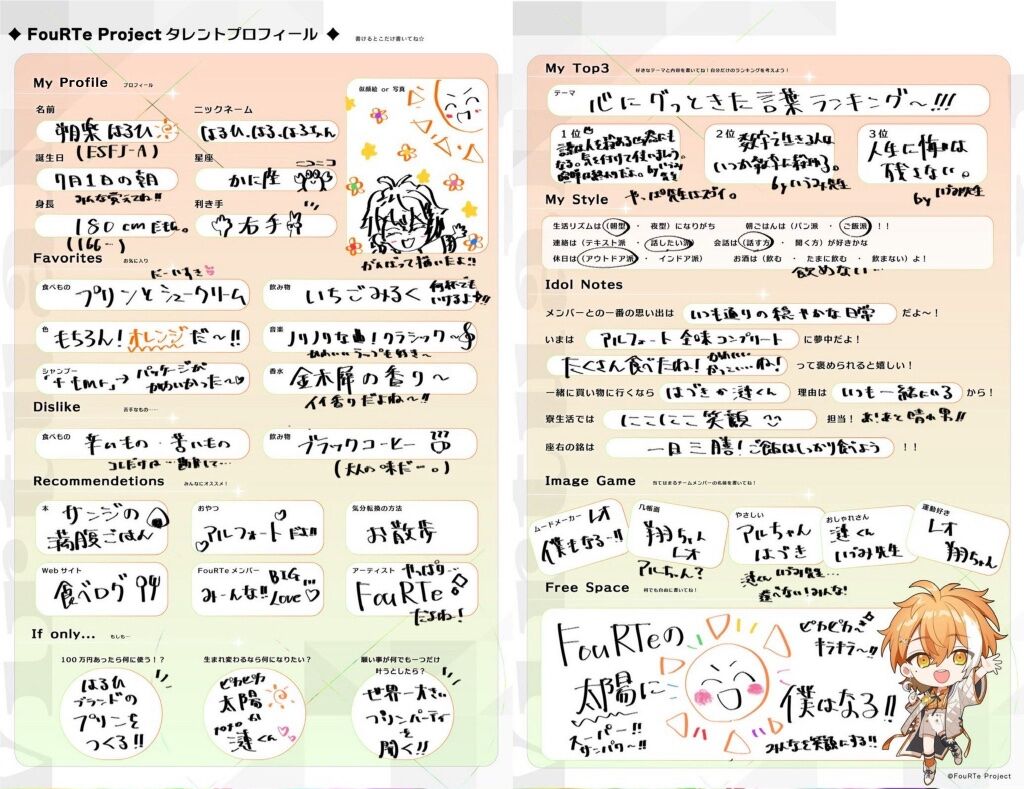 ◆ FouRTe Project タレントプロフィール ◆
書けるとこだけ書いてね☆
My Profile プロフィール
名前
朔楽 はるひ
(ESFJ-A)
ニックネーム
はるひ、はる、はるちゃん
誕生日
7月1日の朝
みんな覚えてね!!
星座
かに座
ニコニコ
身長
180cmだもん。
(166…)
利き手
右手
似顔絵 or 写真
がんばって描いたよ!!
Favorites お気に入り
だーいすき
食べもの
プリンとシュークリーム
飲み物
いちごみるく 何杯でもいけるよ!!
色
もちろん!オレンジだ〜!!
音楽
ノリノリな曲!クラシック〜
かわいいラップも好き〜
シャンプー
パッケージがかわいかった〜
香水
金木犀の香り〜
イイ香りだよね〜!!
Dislike 苦手なもの……
食べもの
辛いもの・苦いもの
コレだけは…勘弁して…
飲み物
ブラックコーヒー
(大人の味だ…。)
Recommendetions みんなにオススメ!
本
サンジの満腹ごはん
おやつ
アルフォートだよ!!
気分転換の方法
お散歩
Webサイト
食べログ
FouRTeメンバー
みーんな!! BIG Love♡
アーティスト
やっぱり…
FouRTe
だよね!
If only... もしも…
100万円あったら何に使う!?
はるひ
ブランドの
プリンを
つくる!!
生まれ変わるなら何になりたい?
ピカピカ
太陽
漣くん
願い事が何でも一つだけ
叶うとしたら?
世界一大きい
プリンパーティ
を
開く!!
My Top3 好きなテーマと内容を書いてね!自分だけのランキングを考えよう!
テーマ
心にグッときた言葉ランキング〜!!!
1位
言葉は人を殺める凶器にも
なる。気を付けて使いましょう。
byいづみ先生
2位
数字で生きる人は
いつか数字に殺される。
byいづみ先生
3位
人生に悔いは
残さない。
byいづみ先生
やっぱ先生はスゴイ。
My Style
生活リズムは(朝型 ・ 夜型)になりがち 朝ごはんは(パン派 ・ ご飯派)!!
連絡は(テキスト派 ・ 話したい派) 会話は(話す方 ・ 聞く方)が好きかな
休日は(アウトドア派 ・ インドア派) お酒は(飲む ・ たまに飲む ・ 飲まない)よ!
飲めない…
Idol Notes
メンバーとの一番の思い出は いつも通りの穏やかな日常 だよ〜!
いまは アルフォート 全味コンプリート に夢中だよ!
たくさん食べたね!かわいい…かっこいい…ね! って褒められると嬉しい!
一緒に買い物に行くなら はづきか漣くん 理由は いつも一緒にいる から!
寮生活では にこにこ笑顔 担当! あ!あと晴れ男!!
座右の銘は 一日三膳!ご飯はしっかり食うよう !!
Image Game 当てはまるチームメンバーの名前を書いてね!
ムードメーカー
レオ
僕もなる〜!!
几帳面
翔ちゃん
レオ
アルちゃん?
やさしい
アルちゃん
はづき
漣くん いづみ先生…
選べない!みんな!
おしゃれさん
漣くん
いづみ先生
運動好き
レオ
翔ちゃん
Free Space 何でも自由に書いてね!
FouRTeの
太陽に
僕はなる!!
スーパー!!
サンパワー!!
ピカピカ〜
キラキラ〜!!
みんなを笑顔にする!!
©FouRTe Project